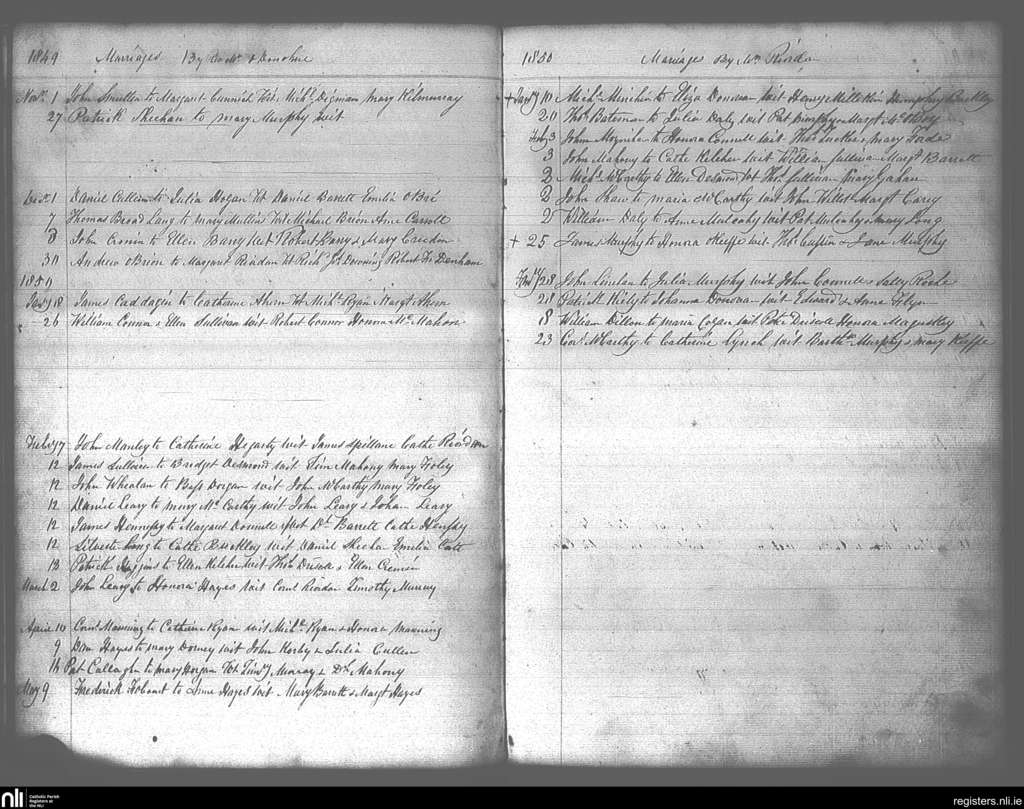 1849 Marriages By Revd Mr O Donohue
Novr. 1 John Smullen to Margaret Cunnick Wit. Michl. Digman Mary Kilmurray
27 Patrick Sheehan to Mary Murphy Wit
Decr. 1 Daniel Cullin to Julia Hogan Wt Daniel Barrett Emelia O Bré
7 Thomas Broad Lang to Mary Mullins Wit Michael Brion Ann Carroll
8 John Cronin to Ellen Barry Wit Robert Barry & Mary Creedon
30 Andrew O Brion to Margaret Riordan Wt Richd. Downing Robert Denham
1850
Jany 18 James Caddagin to Catherine Ahern Wt Michl. Ryan Margt Ahern
26 William Connor & Ellen Sullivan wit Robert Connor Honora Mc. Mahon
Feby 7 John Manley to Catherine Hegarty wit James Spillane Cathe Riordan
12 James Sullivan to Bridget Desmond wit Tim Mahony Mary Foley
12 John Whealan to Bess Dorgan wit John McCarthy Mary Foley
12 Daniel Leary to Mary Mc Carthy wit John Leary & Johan Leary
12 James Hennessy to Margaret Donnell Wit Dl. Barrett Cathe Henssy
12 Silvester Long to Cathe Buckley wit Daniel Sheehan Emelia
13 Patrick Higgins to Ellen Kelcher Wit Thos Driscoll & Ellen
March 2 John Leary to Honora Hayes wit Corns Riordan Timothy Murray
April 10 Corns Manning to Catherine Ryan wit Michl. Ryan & Honora Manning
9 Dan Hayes to Mary Dorney wit John Kerby & Julia Cullen
14 Pat Callaghn to Mary Horgan Wt Timy Murray & Dl. Mahony
May 9 Frederick Hobart to Anne Hayes wit Mary Barrett & Margt Hayes
1850 Marriages By Mr. Riordan
+ Jany 10 Michl. Minihan to Eliza Donovan wit Henry Millekin Humphry Buckley
20 Thos. Bateman to Julia Daly wit Pat Murphy Margt
Feby 3 John Moynihan to Honora Connell wit Thos Tuckie & Mary Forde
3 John Mahony to Cathe Kelcher wit William Sullivan Margt Barrett
2 Michl. McCarthy to Ellen Desmond Wt Thos. Sullivan Mary Gahan
2 John Shaw to Maria McCarthy wit John Willet Margt Carey
2 William Daly to Anne Mulcahy wit Pat Mulcahy & Mary Long
+ 25 James Murphy to Honora O Keeffe wit Thos. Cuffin & Jane Murphy
Jany 28 John Linehan to Julia Murphy wit John Connell & Sally Roche
28 Patrick Kiely to Johanna Donovan wit Edward & Anne
18 William Dillon to Maria Cogan wit Peter Driscoll Honora
23 Cors. McCarthy to Catherine Lynch wit Barthw. Murphy & Mary Keeffe
nli Catholic Parish
Registers at
the NLI
registers.nli.ie